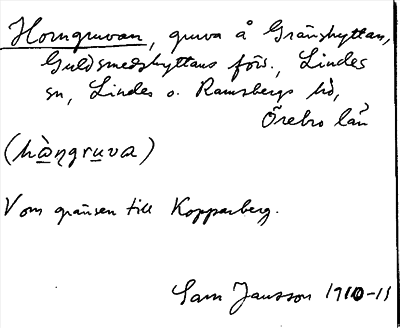 Horngruvan, gruva å Gränshyttan,
Guldsmedshyttans förs., Lindes
sn, Lindes o. Ramsbergs hd,
Örebro län
(hàŋgruva)
Vom gränsen till Kopparberg.
Sam Jansson 1910-11